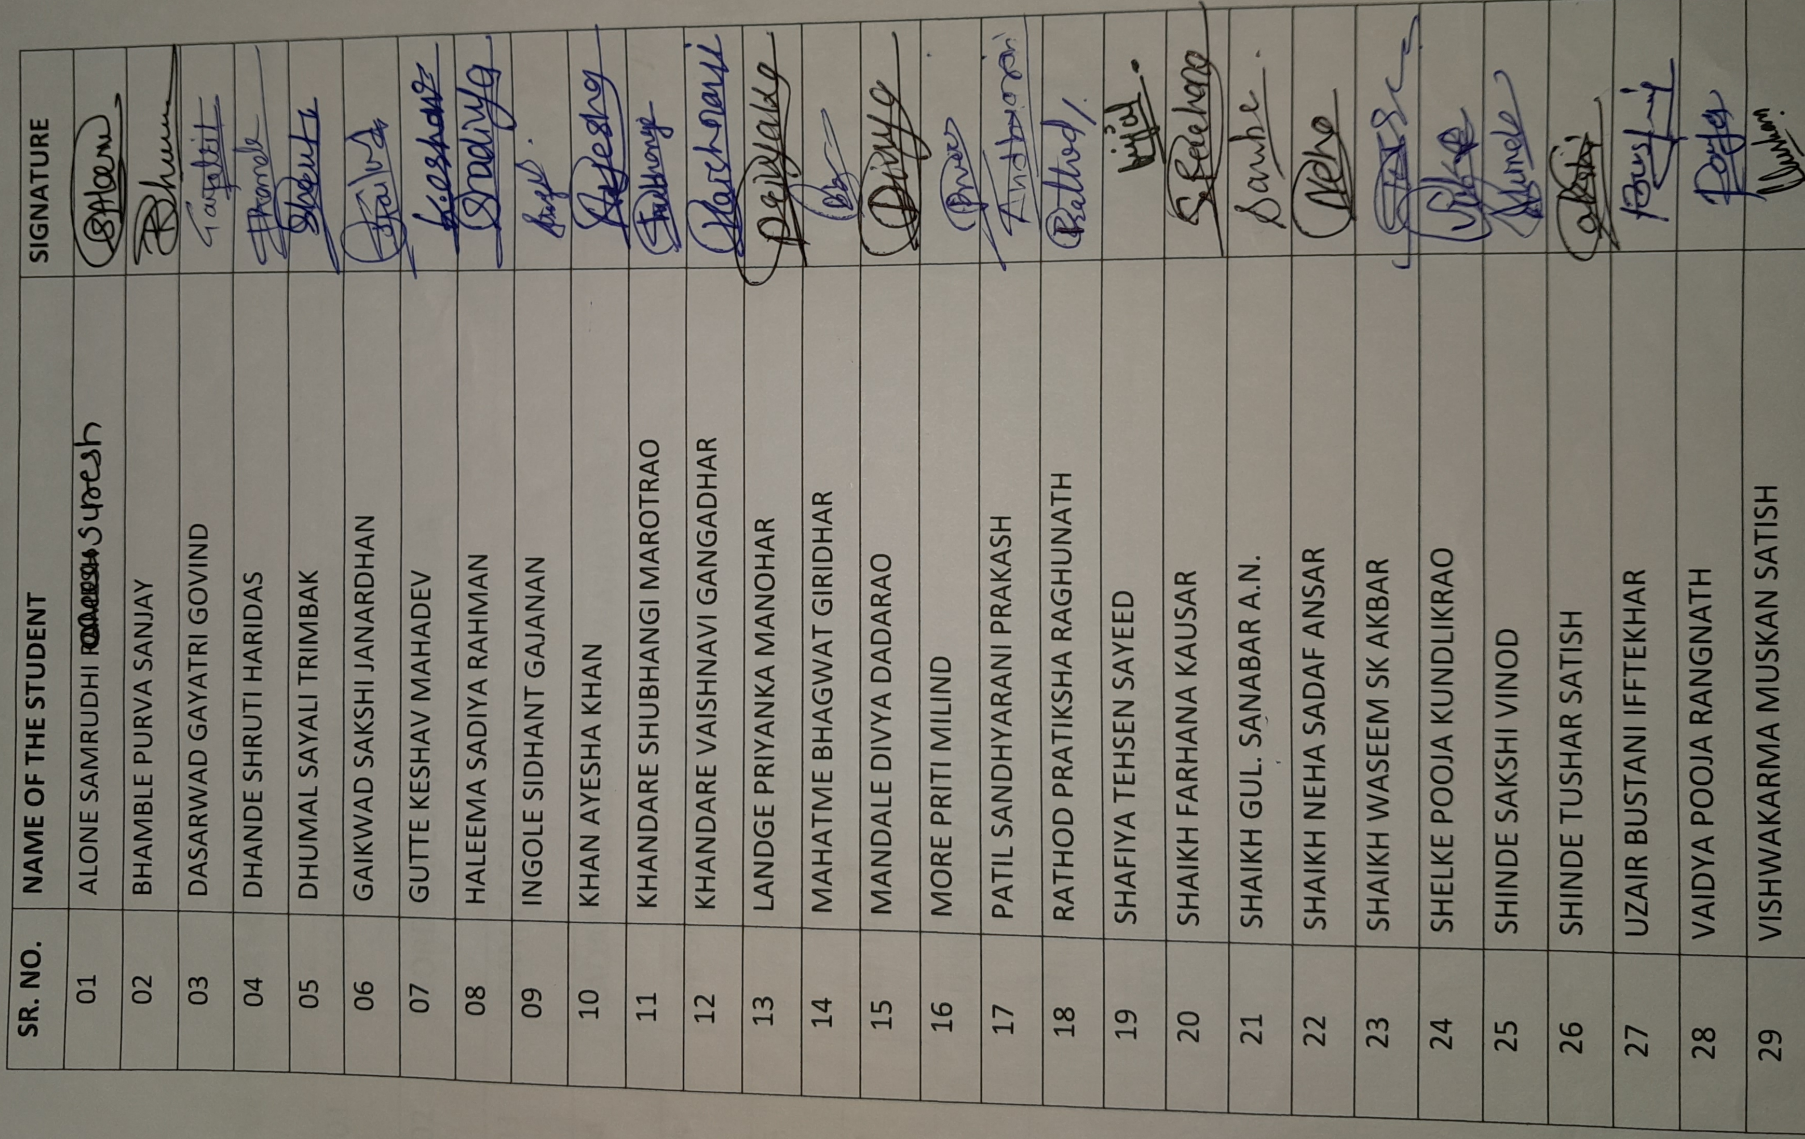 SR. NO. NAME OF THE STUDENT SIGNATURE
01 ALONE SAMRUDHI suresh
02 BHAMBLE PURVA SANJAY
03 DASARWAD GAYATRI GOVIND
04 DHANDE SHRUTI HARIDAS
05 DHUMAL SAYALI TRIMBAK
06 GAIKWAD SAKSHI JANARDHAN
07 GUTTE KESHAV MAHADEV Keshav
08 HALEEMA SADIYA RAHMAN Sadiya
09 INGOLE SIDHANT GAJANAN
10 KHAN AYESHA KHAN Ayesha
11 KHANDARE SHUBHANGI MAROTRAO
12 KHANDARE VAISHNAVI GANGADHAR
13 LANDGE PRIYANKA MANOHAR
14 MAHATME BHAGWAT GIRIDHAR
15 MANDALE DIVYA DADARAO Divya
16 MORE PRITI MILIND
17 PATIL SANDHYARANI PRAKASH
18 RATHOD PRATIKSHA RAGHUNATH
19 SHAFIYA TEHSEN SAYEED
20 SHAIKH FARHANA KAUSAR
21 SHAIKH GUL. SANABAR A.N.
22 SHAIKH NEHA SADAF ANSAR Neha
23 SHAIKH WASEEM SK AKBAR
24 SHELKE POOJA KUNDLIKRAO
25 SHINDE SAKSHI VINOD
26 SHINDE TUSHAR SATISH
27 UZAIR BUSTANI IFFTEKHAR
28 VAIDYA POOJA RANGNATH
29 VISHWAKARMA MUSKAN SATISH